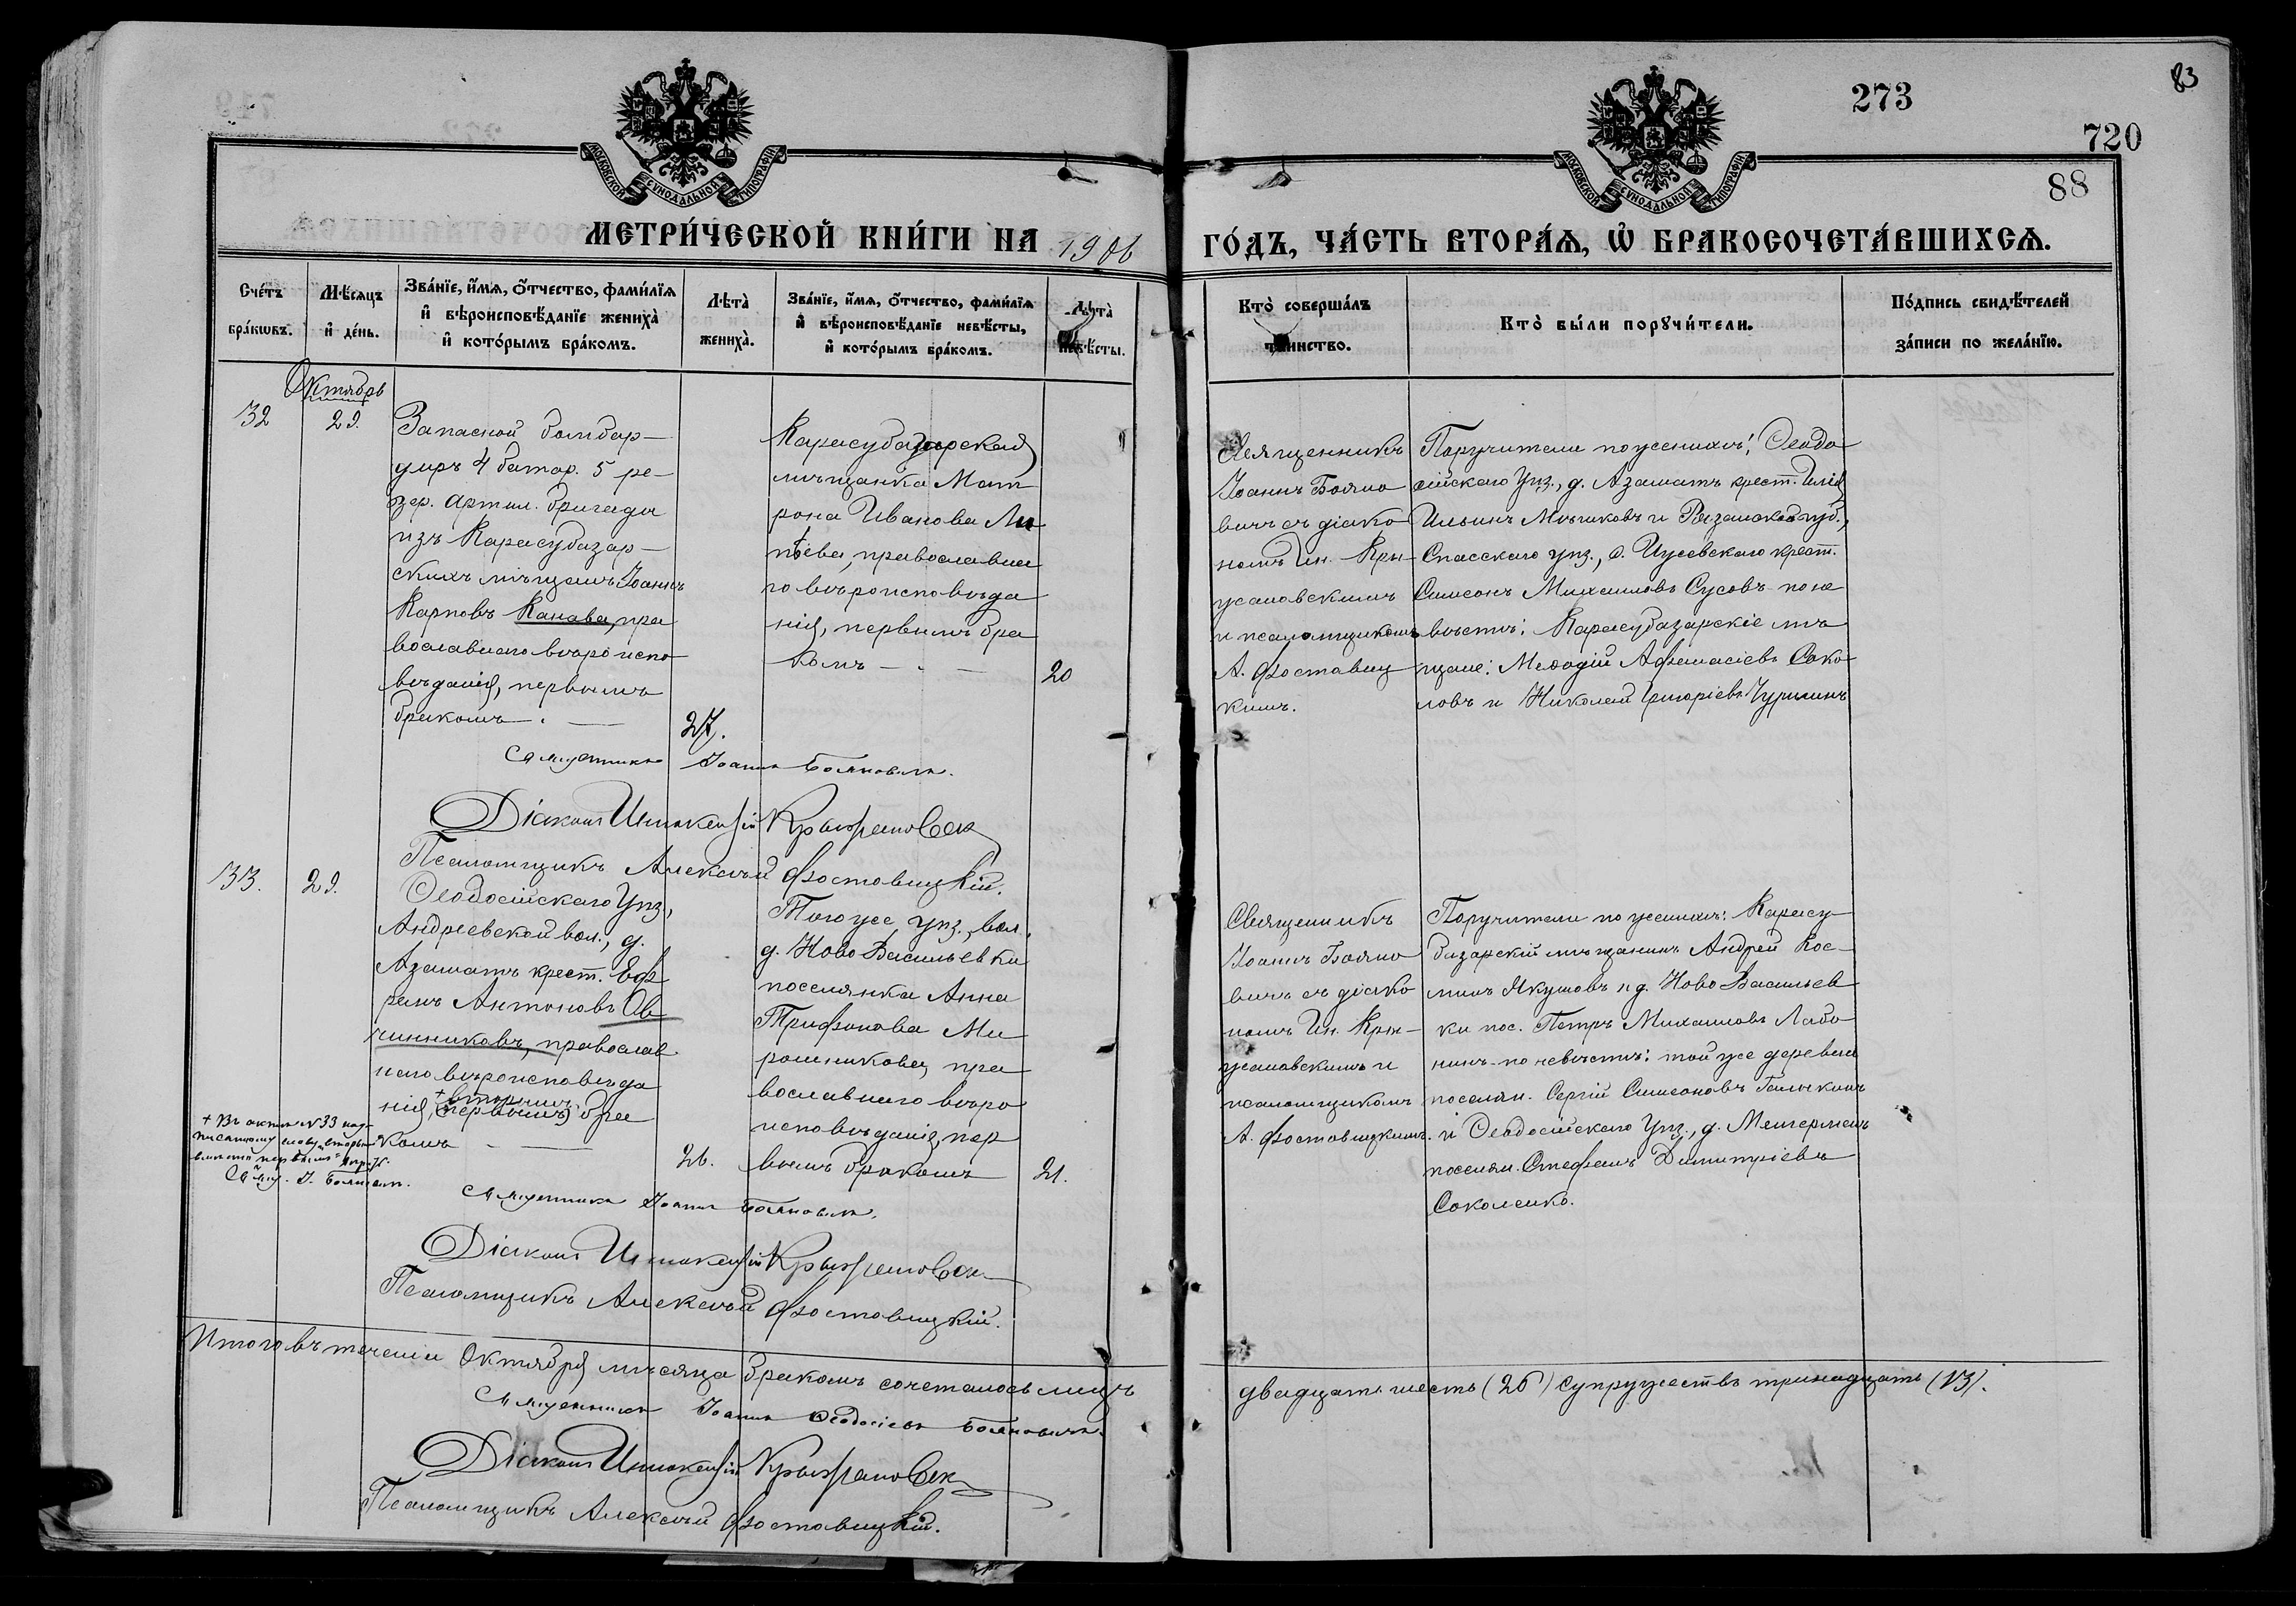 273
83
720
88
МОСКОВСКОЙ СѴНОДАЛЬНОЙ ТИПОГРАФІИ
МОСКОВСКОЙ СѴНОДАЛЬНОЙ ТИПОГРАФІИ
МЕТРИ́ЧЕСКОЙ КНИ́ГИ НА 1906
ГО́ДЪ, ЧА́СТЬ ВТОРА́Я, Ѡ БРАКОСОЧЕТА́ВШИХСѦ.
Сче́тъ
бра́кѡвъ.
Мѣ́сяцъ
и҆ де́нь.
Зва́нїе, и҆́мѧ, ѻ҆́тчество, фами́лїѧ
и҆ вѣроисповѣ́данїе жениха̀
и҆ кото́рымъ бра́комъ.
Лѣта̀
жениха̀.
Зва́нїе, и҆́мѧ, ѻ҆́тчество, фами́лїѧ
и҆ вѣроисповѣ́данїе невѣ́сты,
и҆ кото́рымъ бра́комъ.
Лѣта̀
невѣ́сты.
Кто̀ соверша́лъ
таинство.
Кто̀ бы́ли порꙋчи́тели.
По́дпись свидѣ́телей
за́писи по жела́нїю.
Октябрь
32
29.
Запасной бомбар-
диръ 4 батар. 5 ре-
зер. Артил. бригады
изъ Карасубазар-
скихъ мѣщанъ Іоаннъ
Карповъ Канава, пра
вославнаго вѣроиспо
вѣданія, первымъ
бракомъ.
27.
Карасубазарская
мѣщанка Мат
рона Иванова Ли
пѣева, православна
го вѣроисповѣда
нія, первымъ бра
комъ
20
Священникъ
Іоаннъ Бояно
вичъ съ діако
номъ Ин. Кры-
жановскимъ
и псаломщикомъ
А. Фоставиц
кимъ.
Поручители по женихѣ: Ѳеодо
сійскаго Уѣз., д. Азаматъ крест. Илія
Ильинъ Мѣшковъ и Рязанской губ.,
Спасскаго уѣз., с. Ижевскаго крест.
Симеонъ Михаиловъ Сусовъ - по не
вѣстѣ: Карасубазарскіе мѣ
щане: Меѳодій Аѳанасіевъ Соко
ловъ и Николай Григоріевъ Чурилинъ
Священникъ Іоаннъ Бояновичъ.
Діаконъ Иннокентій Крыжановск
Псаломщикъ Алексѣй Фоставицкій.
33.
29.
Ѳеодосійскаго Уѣз.,
Андреевской вол., д.
Азаматъ крест. Еф
ремъ Антоновъ Ов
чинниковъ, православ
наго вѣроисповѣда
+ вторымъ
нія, (первымъ) бра
комъ
26.
Того же уѣз., вол.,
д. Ново Васильевки
поселянка Анна
Трифонова Ми
рошникова, пра
вославнаго вѣро
исповѣданія, пер
вымъ бракомъ
21.
Священникъ
Іоаннъ Бояно
вичъ съ діако
номъ Ин. Кры-
жановскимъ и
псаломщикомъ
А. Фоставицкимъ.
Поручители по женихѣ: Карасу-
базарскій мѣщанинъ Андрей Кос-
минъ Якушовъ и д. Ново Васильев
ки пос. Петръ Михаиловъ Лабо
нинъ - по невѣстѣ: той же деревни
поселян. Сергій Симеоновъ Галыкинъ
и Ѳеодосійскаго Уѣз., д. Менгерменъ
поселян. Стефанъ Димитріевъ
Соколенко.
+ Въ актѣ № 33 над-
писанному слову „вторымъ“
вмѣсто „первымъ“ вѣрить.
Свящ. І. Бояновичъ.
Священникъ Іоаннъ Бояновичъ.
Діаконъ Иннокентій Крыжановск
Псаломщикъ Алексѣй Фоставицкій.
Итого въ теченіи Октября мѣсяца бракомъ сочеталось лицъ двадцать шесть (26) супружествъ тринадцать (13).
Священникъ Іоаннъ Ѳеодосіевъ Бояновичъ.
Діаконъ Иннокентій Крыжановск
Псаломщикъ Алексѣй Фоставицкій.